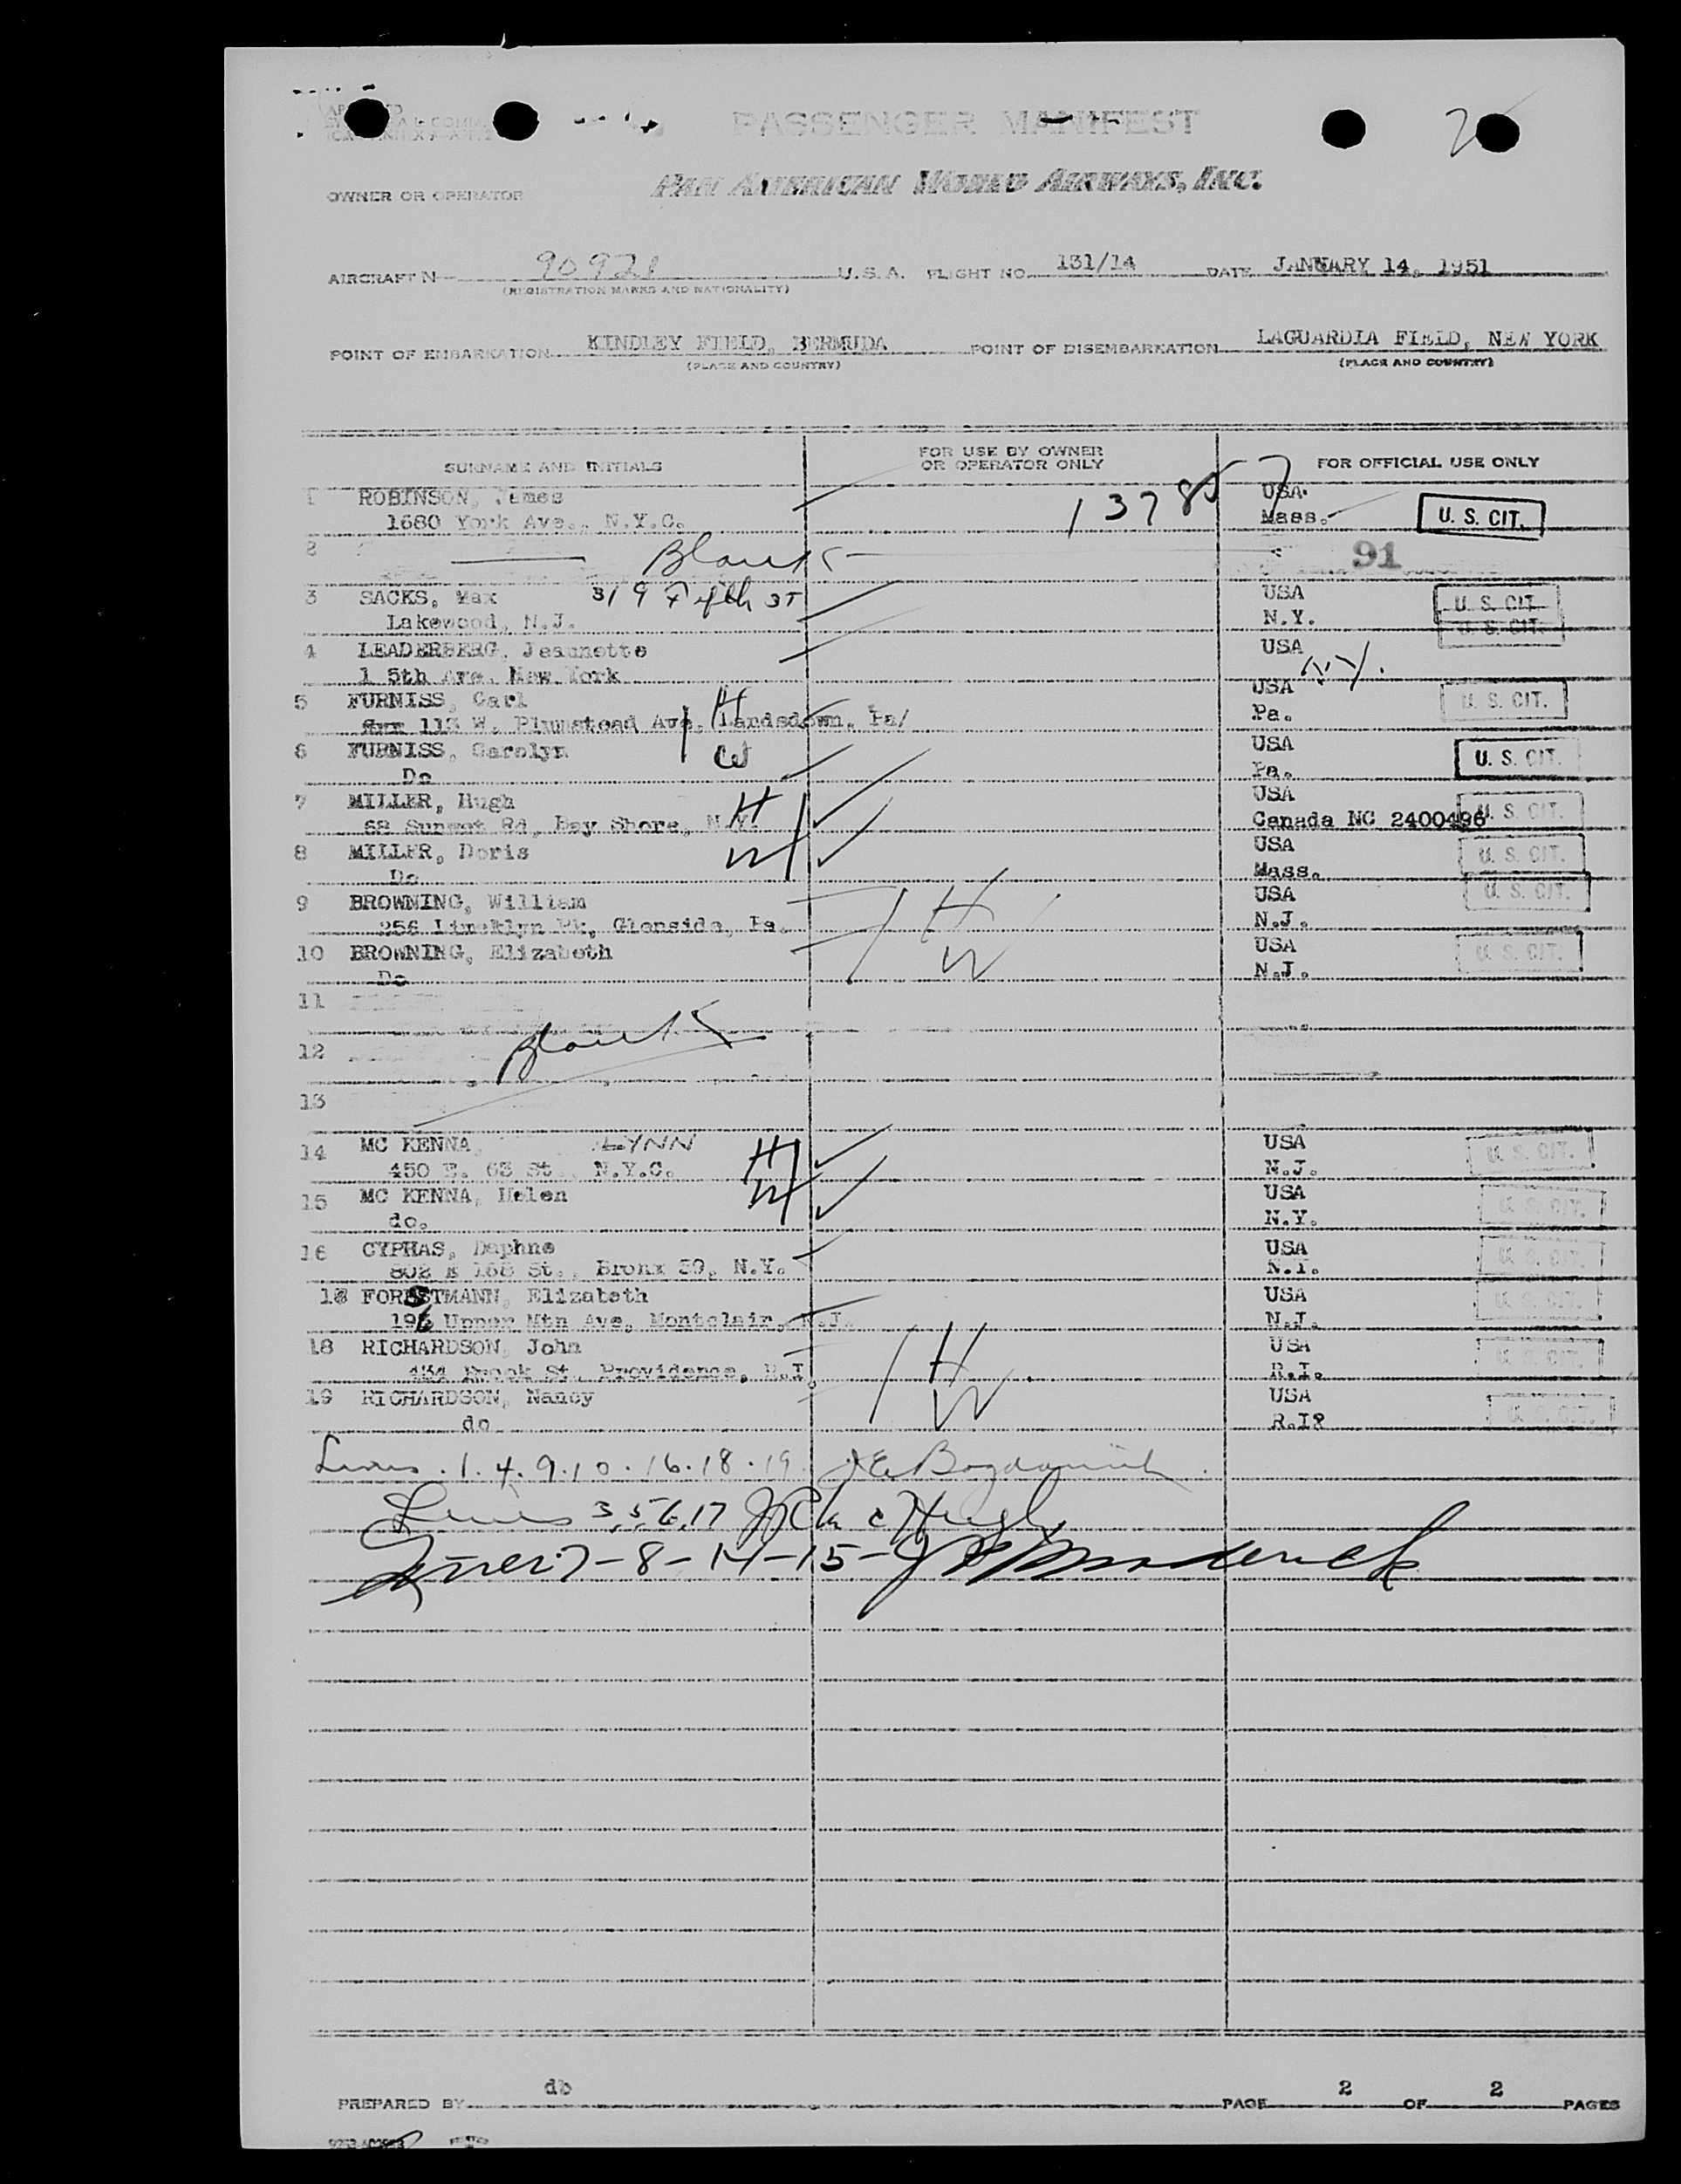 PASSENGER MANIFEST 2
OWNER OR OPERATOR PAN AMERICAN WORLD AIRWAYS, INC.
AIRCRAFT N 90921 U.S.A. FLIGHT NO. 131/14 DATE JANUARY 14, 1951
(REGISTRATION MARKS AND NATIONALITY)
POINT OF EMBARKATION KINDLEY FIELD, BERMUDA POINT OF DISEMBARKATION LAGUARDIA FIELD, NEW YORK
(PLACE AND COUNTRY) (PLACE AND COUNTRY)
SURNAME AND INITIALS FOR USE BY OWNER OR OPERATOR ONLY FOR OFFICIAL USE ONLY
1 ROBINSON, James 137857 USA.
1680 York Ave., N.Y.C. Mass. U. S. CIT.
2 Blank 91
3 SACKS, Max 319 Fifth ST USA U. S. CIT.
Lakewood, N.J. N.Y. U. S. CIT.
4 LEADERBERG, Jeannette USA
1 5th Ave. New York N.Y.
5 FURNISS, Carl H USA U. S. CIT.
113 W. Plumstead Ave, Landsdown, Pa/ Pa.
6 FURNISS, Carolyn W USA U. S. CIT.
Do Pa.
7 MILLER, Hugh H USA U. S. CIT.
68 Sunset Rd, Bay Shore, N.Y. Canada NC 2400496
8 MILLER, Doris W USA U. S. CIT.
Do Mass.
9 BROWNING, William H USA U. S. CIT.
256 Limeklyn Pk, Glenside, Pa. N.J.
10 BROWNING, Elizabeth W USA U. S. CIT.
Do N.J.
11
12 Blank
13
14 MC KENNA, LYNN H USA U. S. CIT.
450 E. 63 St., N.Y.C. N.J.
15 MC KENNA, Helen W USA U. S. CIT.
do. N.Y.
16 CYPHAS, Daphne USA U. S. CIT.
802 E 168 St., Bronx 59, N.Y. N.Y.
18 FORSTMANN, Elizabeth USA U. S. CIT.
196 Upper Mtn Ave, Montclair, N.J. N.J.
18 RICHARDSON, John H USA U. S. CIT.
434 Brook St, Providence, R.I. R.I.
19 RICHARDSON, Nancy W USA U. S. CIT.
do R.I?
Lines . 1. 4. 9. 10. 16. 18. 19
Lines 3,5,6,17
Lines 7-8-14-15-
PREPARED BY db PAGE 2 OF 2 PAGES